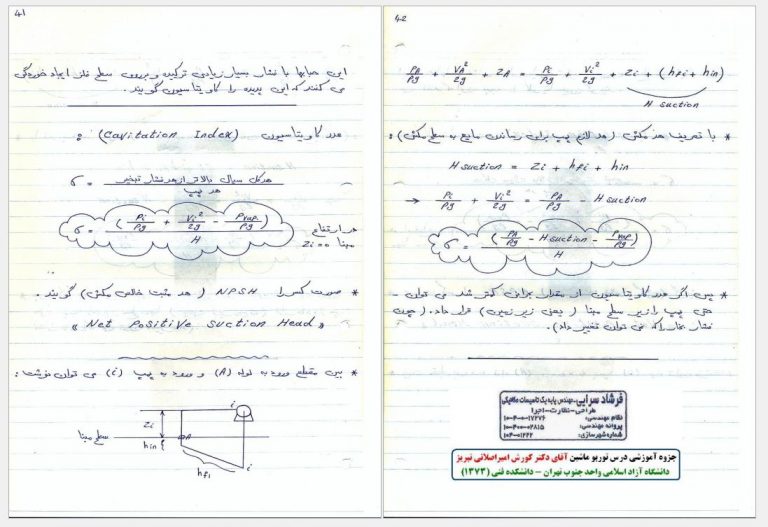 41
این حبابها با فشار بسیار زیادی ترکیده و برروی سطح فلز ایجاد خوردگی
می کنند که این پدیده را کاویتاسیون گویند.
عدد کاویتاسیون (Cavitation Index) :
σ = هدکل سیال بالاتر از هد فشار تبخیر / هد پمپ
σ = (Pi/ρg + Vi²/2g - Pvap./ρg) / H
در ارتفاع مبنا Zi=0
* صورت کسر را NPSH ( هد مثبت خالص مکش) گویند.
« Net Positive Suction Head »
* بین مقطع ورود به لوله (A) و ورود به پمپ (i) می توان نوشت:
i
Zi
سطح مبنا
A
hin
hfi
i
42
PA/ρg + VA²/2g + ZA = Pi/ρg + Vi²/2g + Zi + (hfi + hin)
H suction
* با تعریف هد مکش (هد لازم پمپ برای رساندن مایع به سطح مکش) :
H suction = Zi + hfi + hin
→ Pi/ρg + Vi²/2g = PA/ρg - H suction
σ = (PA/ρg - H suction - Pvap/ρg) / H
* پس اگر عدد کاویتاسیون از مقدار بحرانی کمتر شد می توان
حتی پمپ را زیر سطح مبنا ( یعنی زیر زمین) قرار داد. ( چون
فشار بخار را که نمی توان تغییر داد).
فرشاد سرایی - مهندس پایه یک تاسیسات مکانیکی
طراحی - نظارت - اجرا
نظام مهندسی: ۱۰-۴-۰-۱۷۲۷۶
پروانه مهندسی: ۱۰-۴۰۰-۰۲۸۱۵
شماره شهرسازی:
جزوه آموزشی درس توربو ماشین آقای دکتر کورش امیراصلانی تبریز
دانشگاه آزاد اسلامی واحد جنوب تهران – دانشکده فنی (۱۳۷۳)